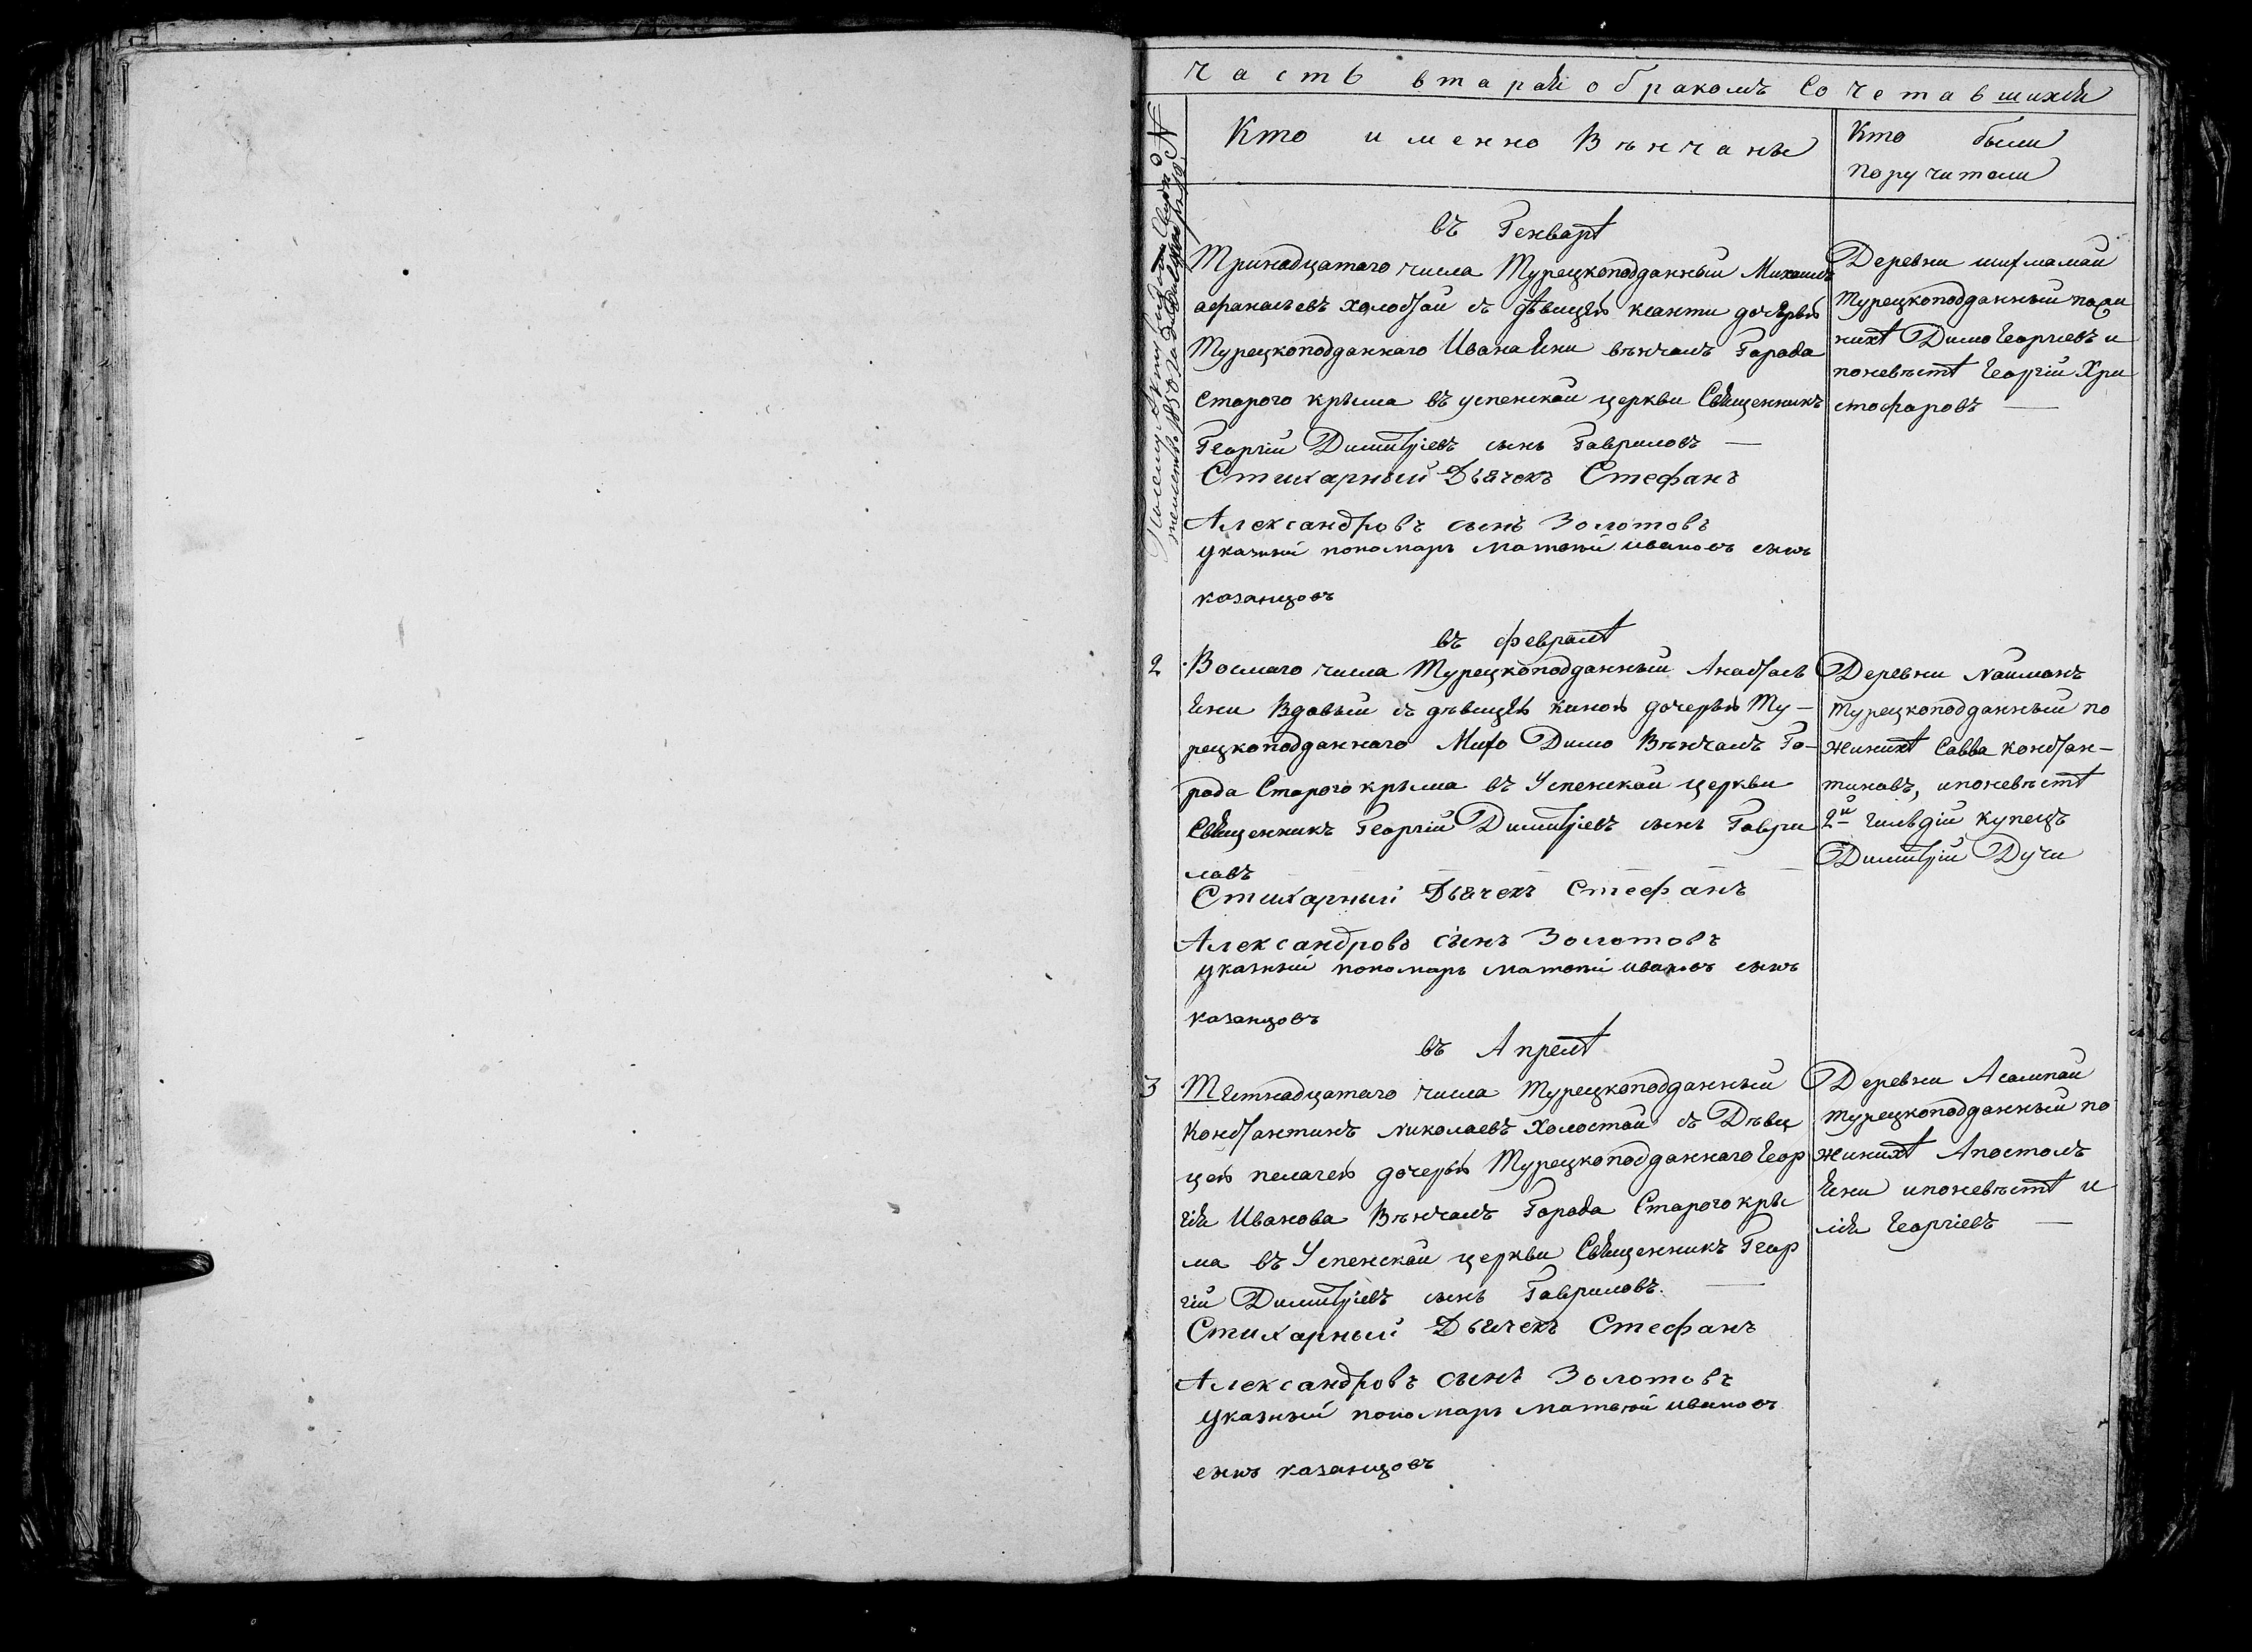 Часть втарая о бракомъ Сочетавшихся
№
Кто именно Вѣнчаны
Кто были
поручители
въ Генварѣ
Тринадцатаго числа Турецкоподданный Михаилъ
афанасьевъ холостай съ дѣвицею ксанти дочерью
Турецкоподданнаго Ивана Яни вѣнчалъ Города
старого крыма въ успенскай церкви Священникъ
Георгій Димитріевъ сынъ Гавриловъ —
Стихарный Дьячекъ Стефанъ
Александровъ сынъ Золотовъ
указный пономарь матвей ивановъ сынъ
казанцовъ
Деревни
Турецкоподданный
нихѣ Димо Георгіевъ и
поневѣстѣ Георгій Хри
стофаровъ —
въ февралѣ
2 Восмаго числа Турецкоподданный Анастасъ
Яни Вдавый съ дѣвицею дочерью Ту-
рецкоподданнаго Димо Вѣнчалъ Го-
рода Старого крыма въ Успенскай церкви
Священникъ Георгій Димитріевъ сынъ Гаври
ловъ
Стихарный Дьячекъ Стефанъ
Александровъ сынъ Золотовъ
указный пономарь матвей ивановъ сынъ
казанцовъ
Деревни Найманъ
Турецкоподданный по
жинихѣ Савва констан-
тиновъ, ипоневѣстѣ
2й гильдіи купецъ
Димитрій Дучи
въ Апрелѣ
3 Тринадцатаго числа Турецкоподданный
Константинъ николаевъ Холостой съ Дѣви
цею пелагею дочерью Турецкоподданнаго Геор
гія Иванова Вѣнчалъ Города Старого кры
ма въ Успенскай церкви Священникъ Геор
гій Димитріевъ сынъ Гавриловъ. —
Стихарный Дьячекъ Стефанъ
Александровъ сынъ Золотовъ
Указный пономарь матвей ивановъ
сынъ казанцовъ
Деревни
турецкоподданный по
жинихѣ Апостолъ
Яни ипоневѣстѣ и
лія Георгіевъ —